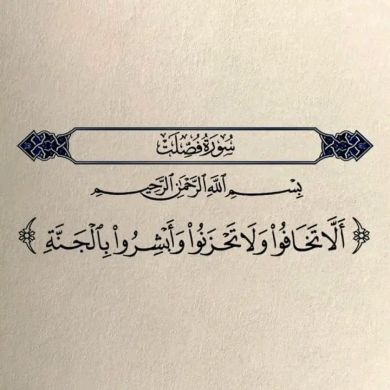 سُورَةُ فُصِّلَتْ
بِسْمِ اللَّهِ الرَّحْمَٰنِ الرَّحِيمِ
﴿ أَلَّا تَخَافُوا۟ وَلَا تَحْزَنُوا۟ وَأَبْشِرُوا۟ بِٱلْجَنَّةِ ﴾